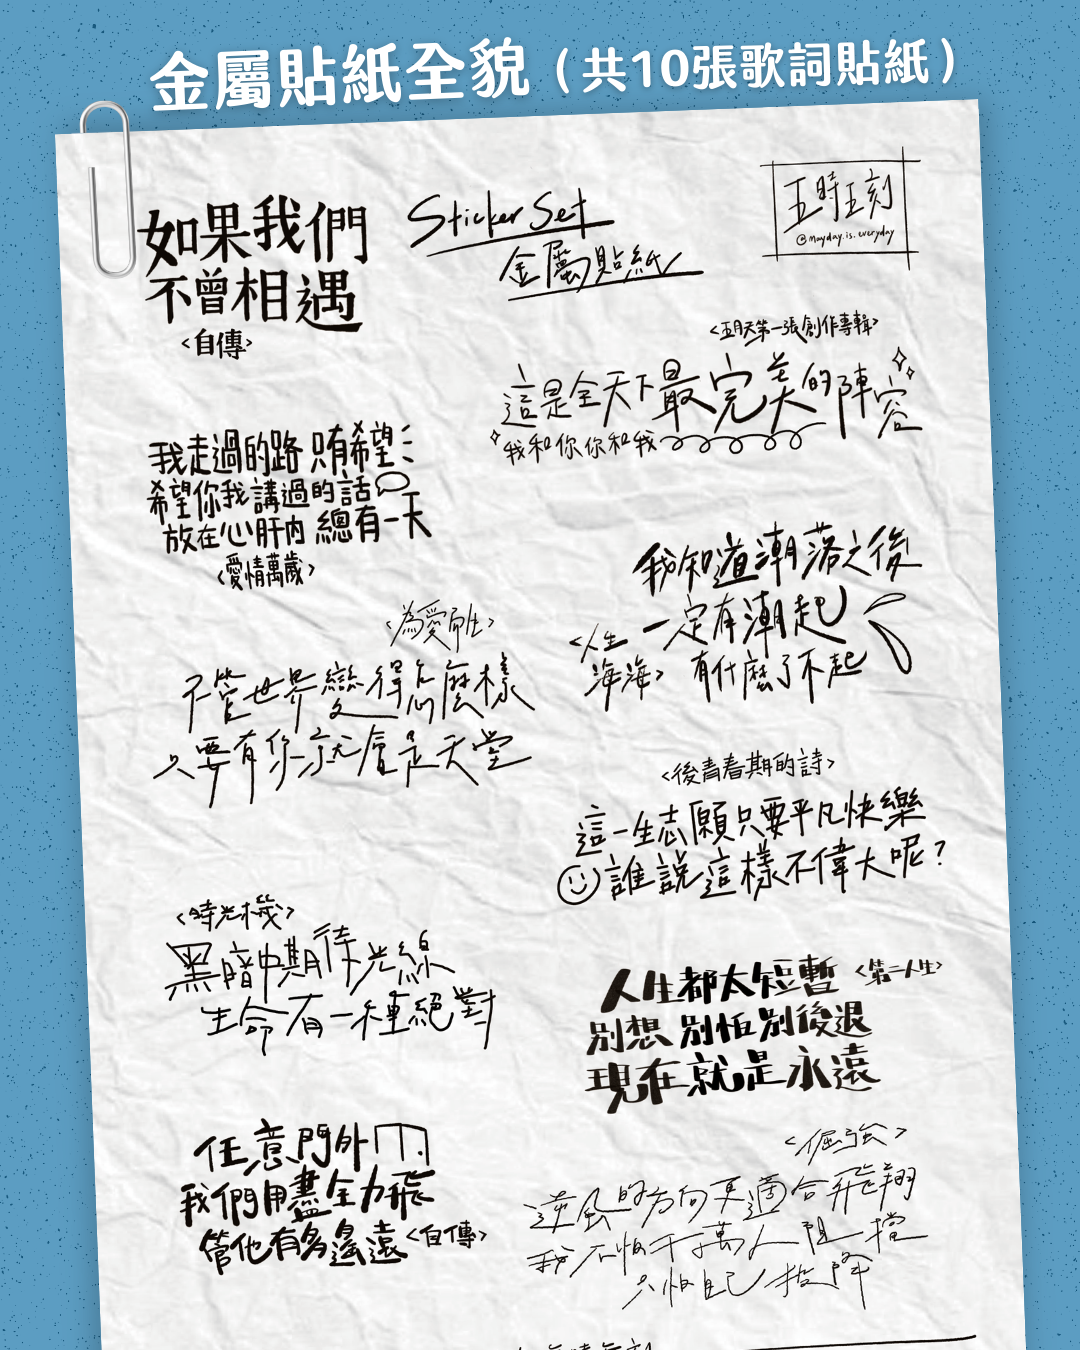 金屬貼紙全貌（共10張歌詞貼紙）
如果我們
不曾相遇
<自傳>
Sticker Set
金屬貼紙
五時五刻
@mayday.is.everyday
<五月天第一張創作專輯>
這是全天下最完美的陣容
我和你你和我
我走過的路 只有希望
希望你我講過的話
放在心肝內 總有一天
<愛情萬歲>
我知道潮落之後
一定有潮起
有什麼了不起
<人生
海海>
<為愛而生>
不管世界變得怎麼樣
只要有你就會是天堂
<後青春期的詩>
這一生志願只要平凡快樂
誰說這樣不偉大呢?
<時光機>
黑暗中期待光線
生命有一種絕對
人生都太短暫 <第二人生>
別想 別怕 別後退
現在就是永遠
任意門外
我們用盡全力飛
管他有多遙遠 <自傳>
<倔強>
逆風的方向更適合飛翔
我不怕千萬人阻擋
只怕自己投降